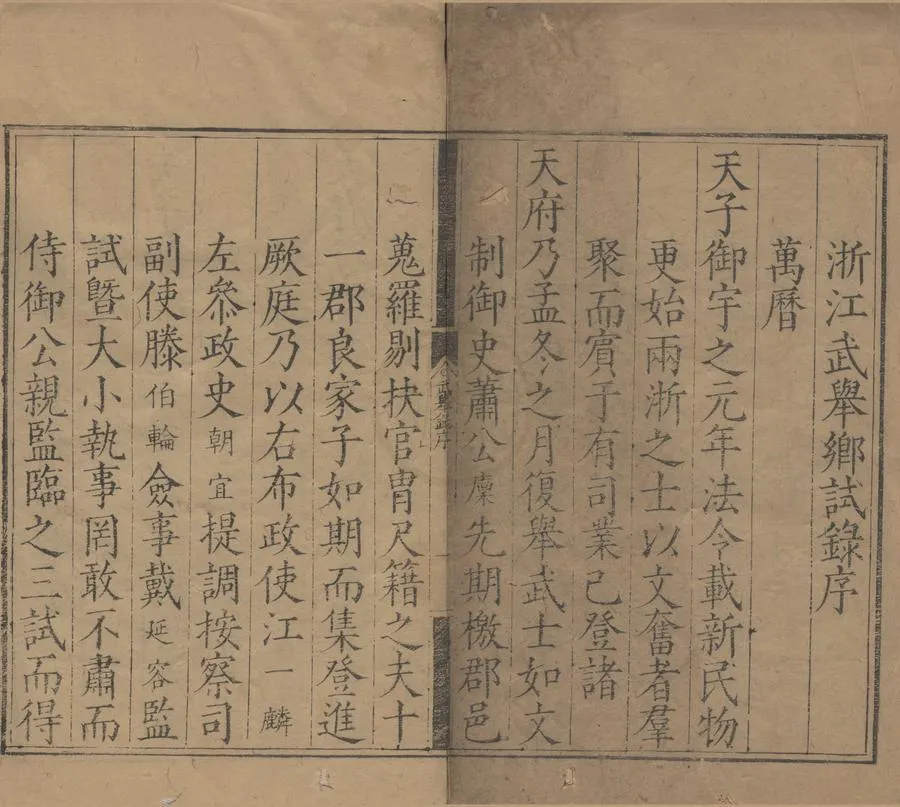 浙江武舉鄉試錄序
萬曆
天子御宇之元年法令載新民物
更始兩浙之士以文奮者羣
聚而賓于有司業已登諸
天府乃孟冬之月復舉武士如文
制御史蕭公廩先期檄郡邑
蒐羅剔抉官胄尺籍之夫十
一郡良家子如期而集登進
厥庭乃以右布政使江一麟
左叅政史朝宜提調按察司
副使滕伯輪僉事戴延容監
試曁大小執事罔敢不肅而
侍御公親監臨之三試而得